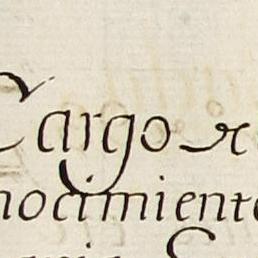 Cargo de
nocimiento